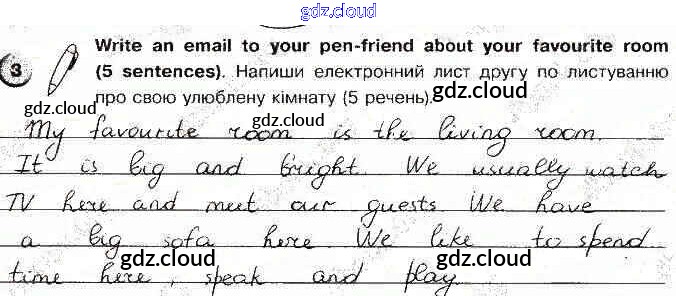 gdz.cloud
3 Write an email to your pen-friend about your favourite room
(5 sentences). Напиши електронний лист другу по листуванню
gdz.cloud
про свою улюблену кімнату (5 речень). gdz.cloud
gdz.cloud
My favourite room is the living room.
gdz.cloud
It is big and bright. We usually watch
gdz.cloud
TV here and meet our guests We have
gdz.cloud
a big sofa here We like to spend
gdz.cloud
gdz.cloud
time here, speak and play.
gdz.cloud